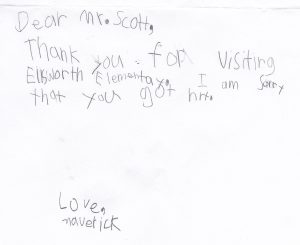 Dear Mr. Scott,
Thank you for visiting
Ellsworth Elementary. I am sorry
that you got hrt.
Love,
maverick